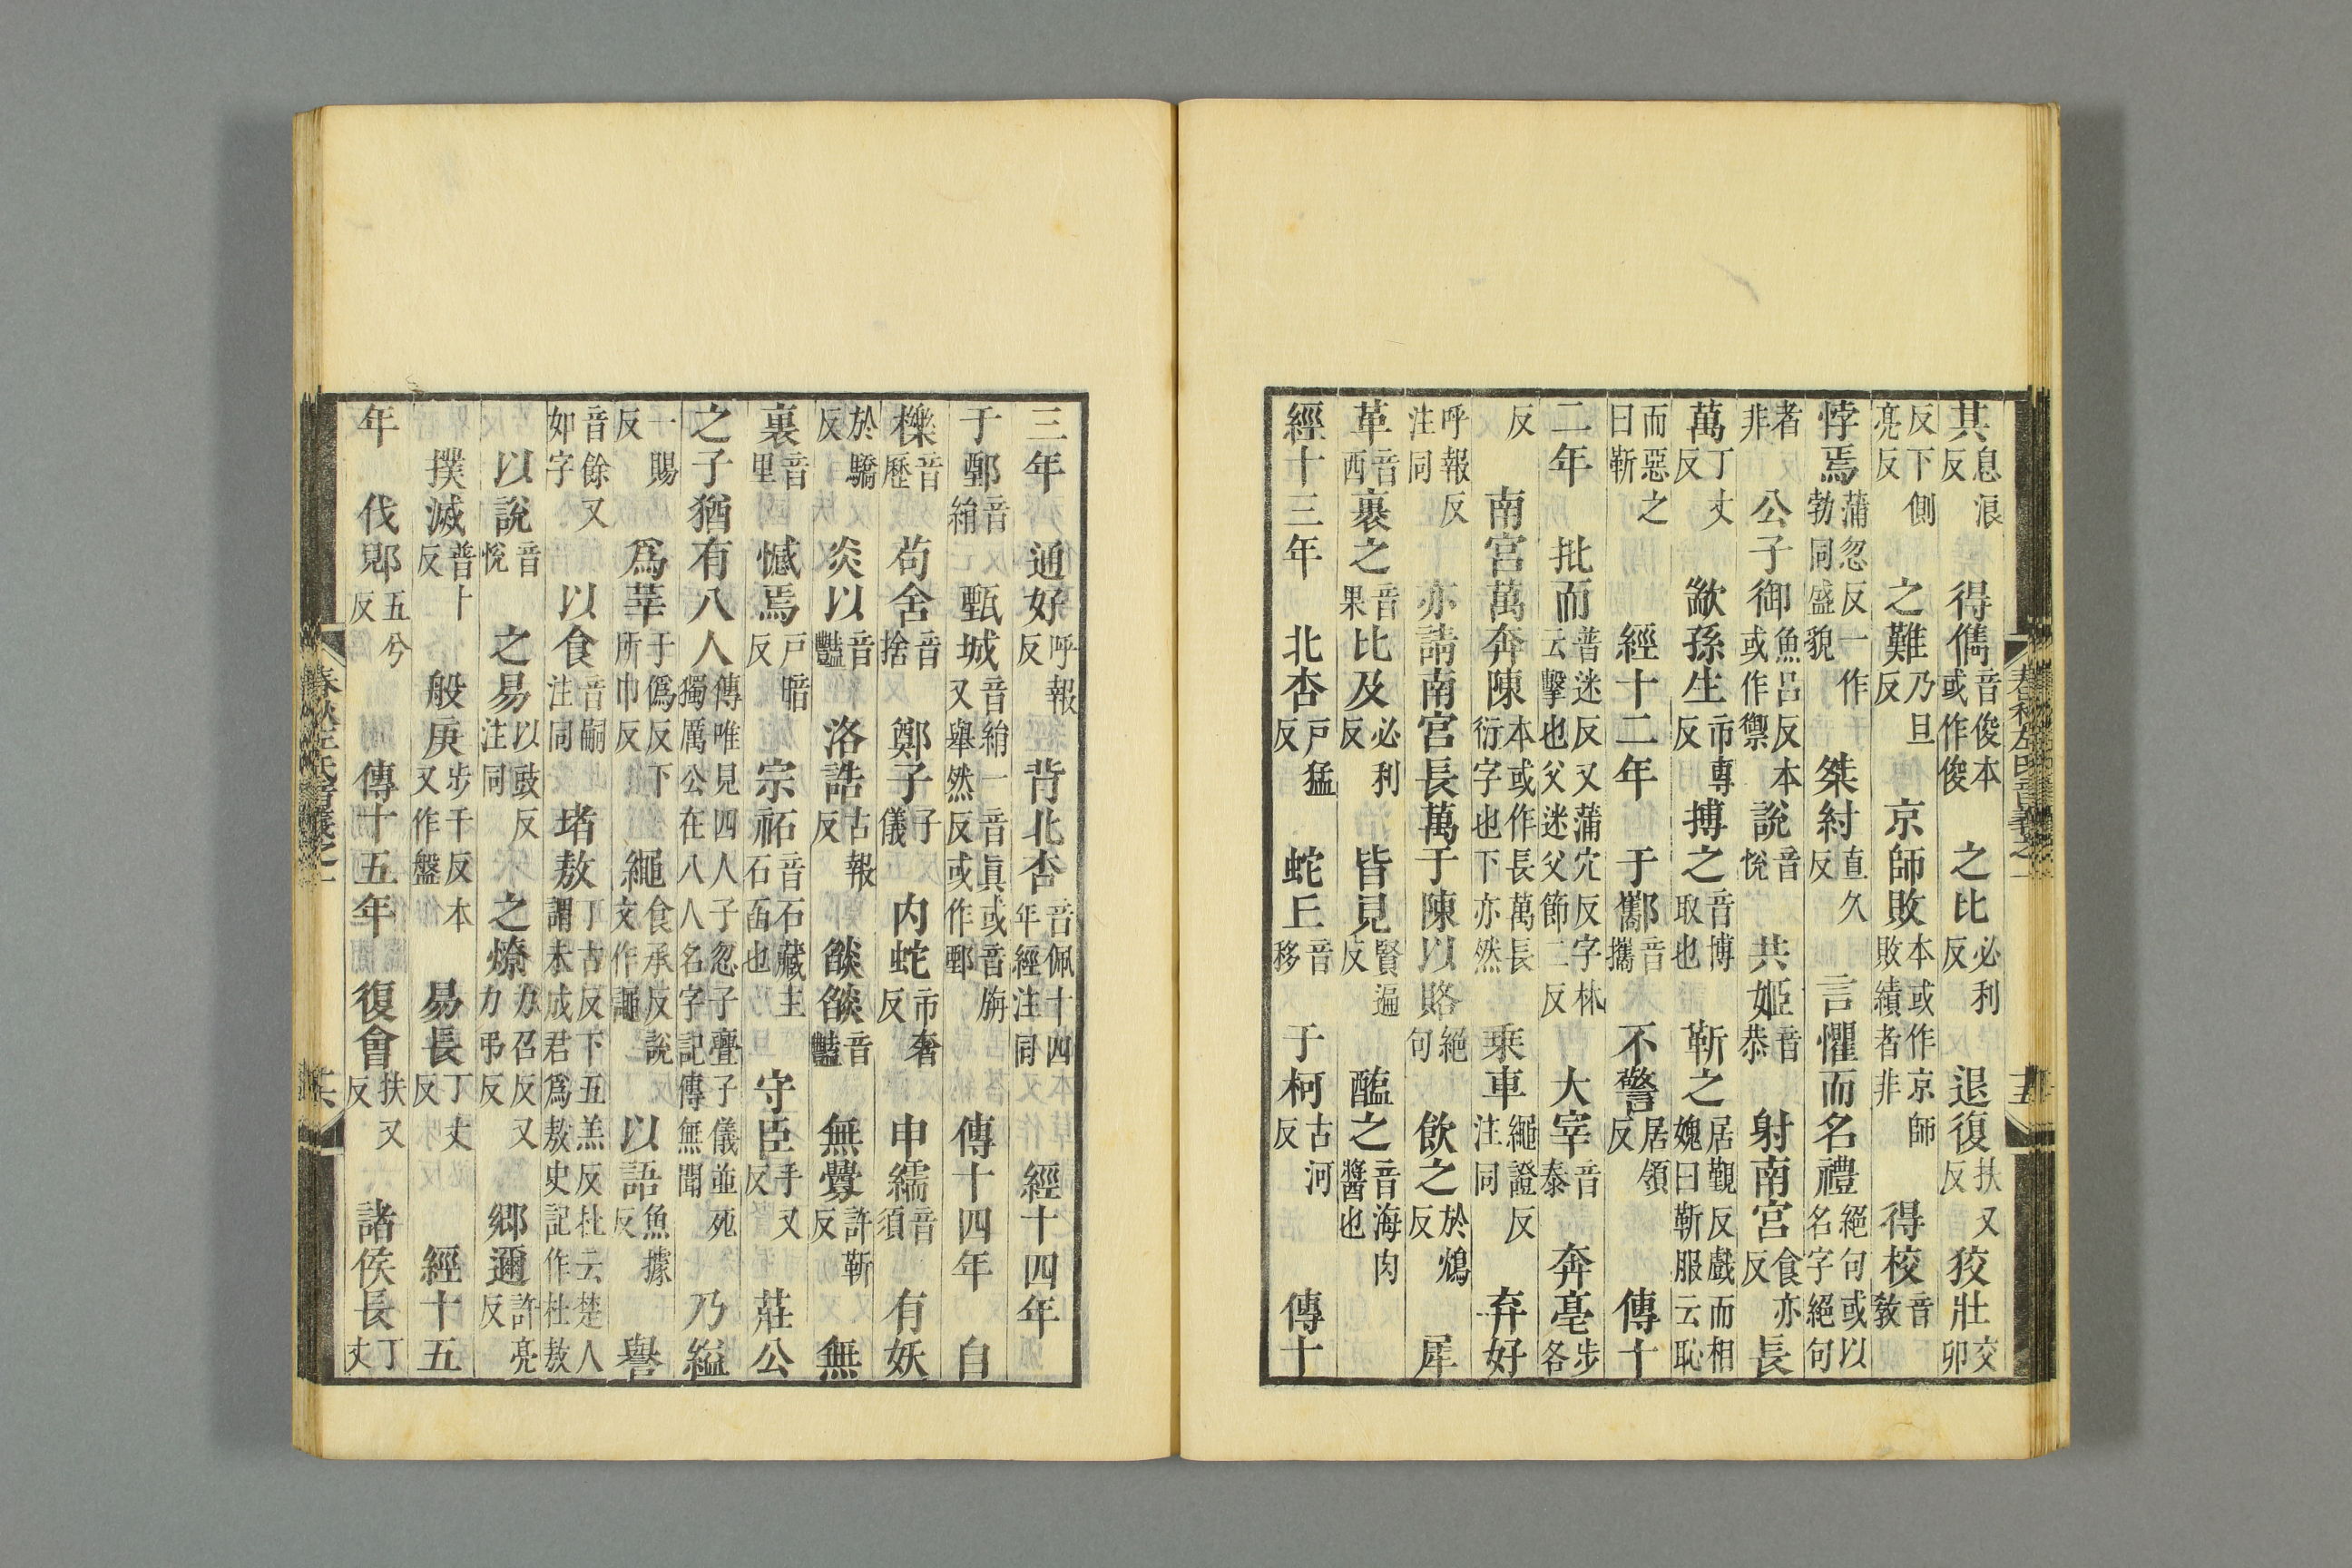 其息浪反　得儁音俊本或作俊　之比必利反　退復扶又反　狡壯交卯
反下側亮反　之難乃旦反　京師敗本或作京師敗績者非　得校音敎
悖焉蒲忽反一作勃同盛貌　桀紂直久反　言懼而名禮絕句或以名字絕句
者非　公子御魚呂反本或作禦　說音悅　共姬音恭　射南宮食亦反　長
萬丁丈反　歂孫生市專反　搏之音博取也　靳之居覲反戲而相媿曰靳服云恥
而惡之曰靳　經十二年　于酅音攜　不警居領反　傳十
二年　批而普迷反又蒲穴反字林云擊也父迷父節二反　大宰音泰　奔亳步各
反　南宮萬奔陳本或作長萬長衍字也下亦然　乘車繩證反注同　弃好
呼報反注同　亦請南宮長萬于陳以賂絕句　飲之於鴆反　犀
革音西　裹之音果　比及必利反　皆見賢遍反　醢之音海肉醬也
經十三年　北杏戶猛反　蛇丘音移　于柯古河反　傳十
春秋左氏音義之一
三年　通好呼報反　背北杏音佩十四年經注同　經十四年
于鄄音絹　甄城音絹一音眞或音旃又舉然反或作鄄　傳十四年　自
櫟音歷　苟舍音捨　鄭子子儀　內蛇市奢反　申繻音須　有妖
於驕反　炎以音豔　洛誥古報反　燄燄音豔　無釁許靳反　無
裏音里　憾焉戶暗反　宗祏音石藏主石函也　守臣手又反　莊公
之子猶有八人傳唯見四人子忽子亹子儀並死獨厲公在八人名字記傳無聞　乃縊
一賜反　爲莘于僞反下所巾反　繩食承反說文作譝　以語魚據反　譽
音餘又如字　以食音嗣注同　堵敖丁古反下五羔反杜云楚人謂未成君爲敖史記作杜敖
以說音悅　之易以豉反注同　之燎力召反又力弔反　鄉邇許亮反
撲滅普卜反　般庚步干反本又作盤　易長丁丈反　經十五
年　伐郳五兮反　傳十五年　復會扶又反　諸侯長丁丈
春秋左氏音義之一